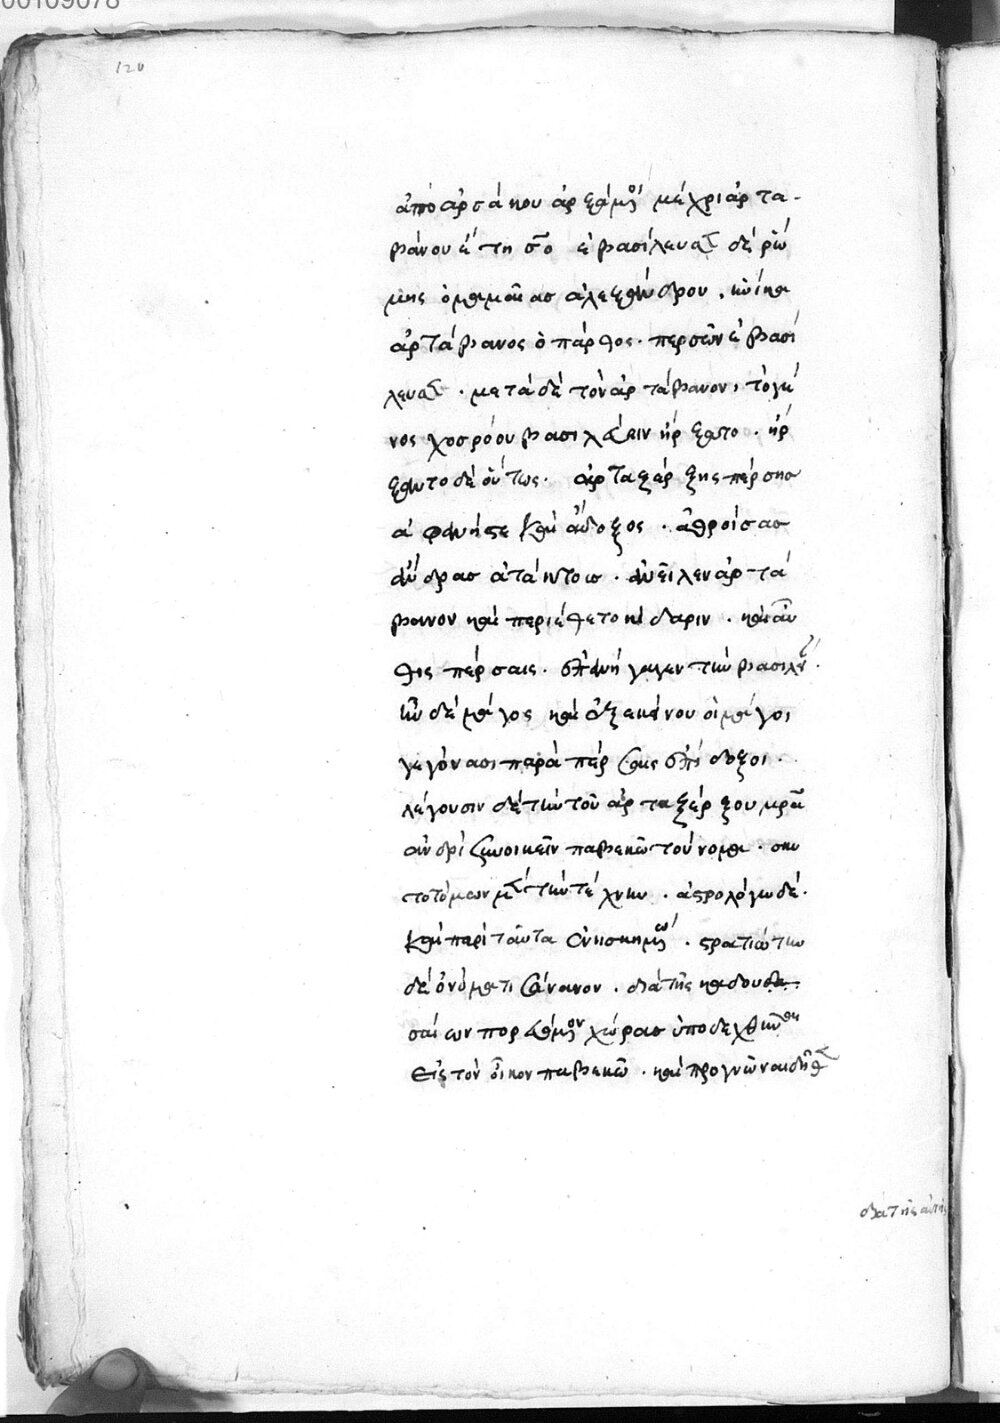 00109078
120
ἀπὸ ἀρσάκου ἀρξαμένου μέχρι ἀρτα-
βάνου ἔτη σο ἐβασίλευσαν δὲ ῥώ
μης ὁ μαμαίας ἀλεξάνδρου. καὶ
ἀρτάβανος ὁ πάρθος. περσῶν ἐβασί
λευσαν. μετὰ δὲ τὸν ἀρτάβανον, τὸ γέ
νος χοσρόου βασιλεύειν ἤρξατο. ἤρ
ξαντο δὲ οὕτως. ἀρταξάρξης πέρσης
ἀφανής τε καὶ ἄδοξος. ἀθροίσας
ἄνδρας ἀτάκτοις. ἀνεῖλεν ἀρτά
βανον καὶ περιέθετο κίδαριν. καὶ αὖ
θις πέρσαις. ἐπανήγαγεν τὴν βασιλείαν.
ἦν δὲ μάγος καὶ ἐξ ἐκείνου οἱ μάγοι
γεγόνασι παρὰ πέρσαις ἐπίδοξοι.
λέγουσιν δὲ τὴν τοῦ ἀρταξέρξου μρα
ἀνδρὶ συνοικεῖν παβεκῶ τοὔνομα. σκυ
τοτόμων μὲν τὴν τέχνην. ἀστρολόγω δὲ.
καὶ περὶ ταῦτα ἐνησκημένω. στρατιώτην
δὲ ὀνόματι σάνανον. διὰ τῆς καδου
σαίων πορευόμενον χώρας ὑποδεχθῆναι
εἰς τὸν οἶκον παβεκῶ. καὶ προγνῶναι δῆθεν
διὰ τῆς αὐτῆς